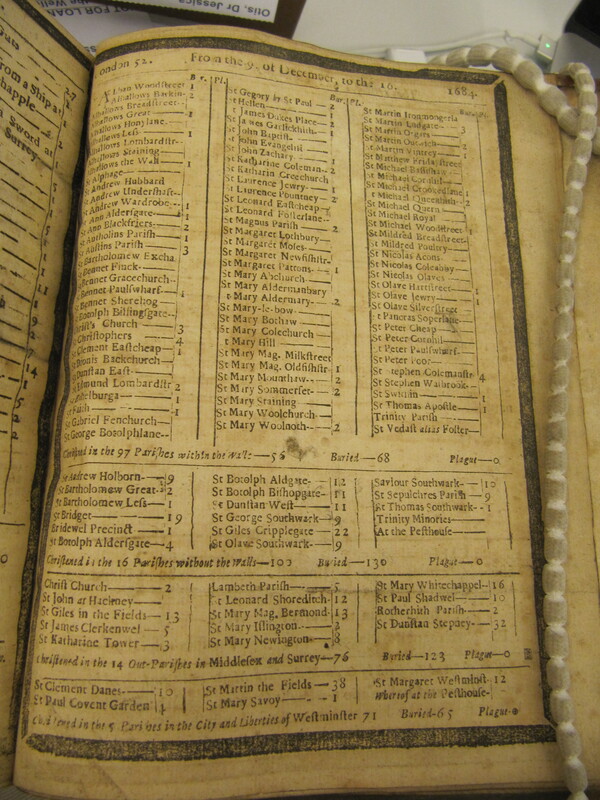 NOT FOR LOAN
Otis, Dr Jessica
London 52. From the 9. of December, to the 16. 1684.
Bur. Pl.
Alhallows Breadstreet
Alhallows Great 1
Alhallows Honylane
Alhallows Less 1
Alhallows Lombardstr
Alhallows Staining
Alhallows the Wall 1
St Alphage
St Andrew Hubbard
St Andrew Undershaft
St Andrew Wardrobe 1
St Ann Aldersgate 1
St Ann Blackfriers 2
St Antholins Parish 1
St Austins Parish 3
St Bartholomew Excha.
St Bennet Finck
St Bennet Gracechurch
St Bennet Paulswharf 1
St Bennet Sherehog
St Botolph Billingsgate
Christ's Church 3
St Christophers
St Clement Eastcheap 1
St Dionis Backchurch
St Dunstan East
St Edmund Lombardstr 2
St Ethelburga 1
St Faith 1
St Gabriel Fenchurch
St George Botolphlane
Bur. Pl.
St Gregory by St Paul 2
St Hellen 1
St James Dukes Place 1
St James Garlickhith 1
St John Baptist
St John Evangelist
St John Zachary 1
St Katharine Coleman 2
St Katharin Creechurch
St Laurence Jewry 1
St Laurence Pountney 2
St Leonard Eastcheap
St Leonard Fosterlane
St Magnus Parish 2
St Margaret Lothbury
St Margaret Moses
St Margaret Newfishstr
St Margaret Pattons 1
St Mary Abchurch
St Mary Aldermanbury
St Mary Aldermary 2
St Mary-le-bow
St Mary Bothaw
St Mary Colechurch
St Mary Hill
St Mary Mag. Milkstreet
St Mary Mag. Oldfishstr 1
St Mary Mounthaw 2
St Mary Sommerset 2
St Mary Staining
St Mary Woolchurch
St Mary Woolnoth 2
St Martin Ironmongerla
St Martin Ludgate 3
St Martin Orgars
St Martin Outwitch 2
St Martin Vintrey 1
St Matthew Fridaystreet
St Michael Bassishaw
St Michael Cornhil
St Michael Crookedlane 1
St Michael Queenhith 2
St Michael Quern
St Michael Royal
St Michael Woodstreet 1
St Mildred Breadstreet
St Mildred Poultry
St Nicolas Acons
St Nicolas Coleabby
St Nicolas Olaves
St Olave Hartstreet 1
St Olave Jewry 1
St Olave Silverstreet
St Pancras Soperlane
St Peter Cheap
St Peter Cornhil
St Peter Paulswharf
St Peter Poor
St Stephen Colemanstr 4
St Stephen Walbrook
St Swithin 1
St Thomas Apostle 1
Trinity Parish
St Vedast alias Foster
Christned in the 97 Parishes within the Walls 56 Buried 68 Plague 0
St Andrew Holborn 19
St Bartholomew Great 2
St Bartholomew Less 1
St Bridget 19
Bridewel Precinct 1
St Botolph Aldersgate 4
St Botolph Aldgate 12
St Botolph Bishopgate 11
St Dunstan West 11
St George Southwark 9
St Giles Cripplegate 22
St Olave Southwark 9
Saviour Southwark 10
St Sepulchres Parish 9
St Thomas Southwark 1
Trinity Minories
At the Pesthouse
Christned in the 16 Parishes without the Walls 102 Buried 130 Plague 0
Christ Church 2
St John at Hackney
St Giles in the Fields 13
St James Clerkenwel 5
St Katharine Tower 3
Lambeth Parish 5
St Leonard Shoreditch 12
St Mary Mag. Bermond 13
St Mary Islington 3
St Mary Newington 8
St Mary Whitechappel 16
St Paul Shadwel 10
Rotherhith Parish 2
St Dunstan Stepney 32
Christned in the 14 Out-Parishes in Middlesex and Surrey 76 Buried 123 Plague 0
St Clement Danes 10
St Paul Covent Garden 4
St Martin the Fields 38
St Mary Savoy 1
St Margaret Westminst 12
Whereof at the Pesthouse
Christned in the 5 Parishes in the City and Liberties of Westminster 71 Buried 65 Plague 0